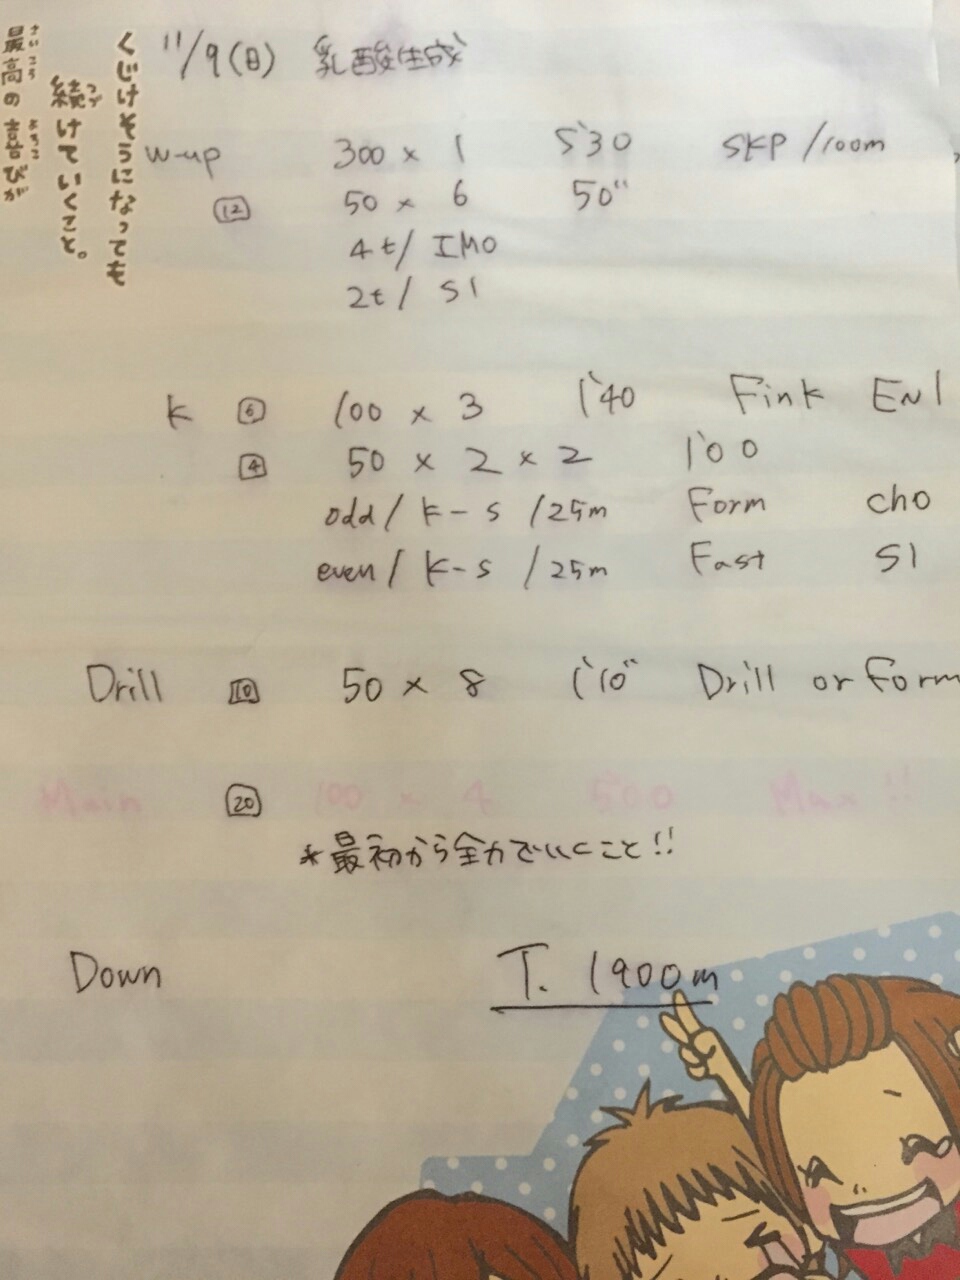 最高の喜びが
さいこう よろこ
続けていくこと。
つづ
くじけそうになっても
11/9(日) 乳酸生成
W-up 300 × 1 5'30 SKP /100m
12 50 × 6 50"
4t/ IMO
2t/ S1
K 6 100 × 3 1'40 Fink EN1
4 50 × 2 × 2 1'00
odd/ K-S /25m Form cho
even/ K-S /25m Fast S1
Drill 10 50 × 8 1'10" Drill or Form
Main 20 100 × 4 5'00 Max!!
*最初から全力でいくこと!!
Down T. 1900m